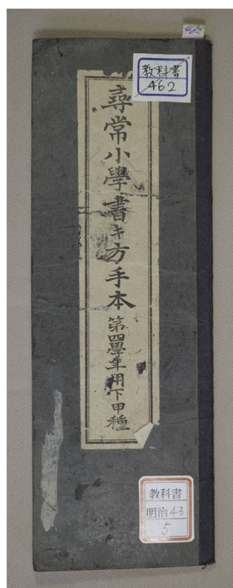 教科書
462
尋常小學書キ方手本第四學年用下甲種
教科書
明治43
5